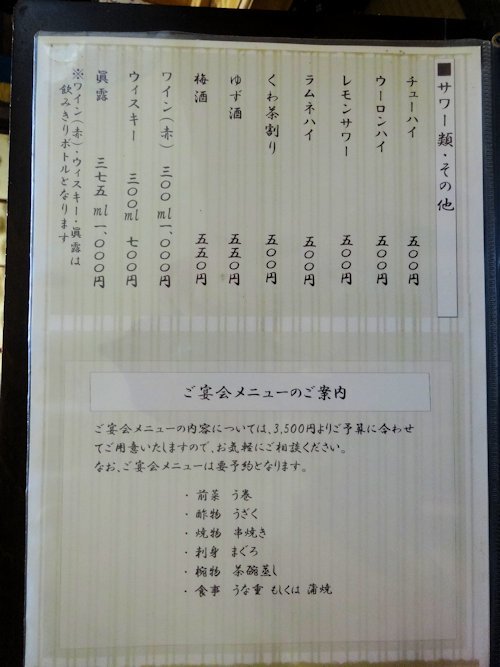 ■サワー類・その他
チューハイ 五〇〇円
ウーロンハイ 五〇〇円
レモンサワー 五〇〇円
ラムネハイ 五〇〇円
くわ茶割り 五〇〇円
ゆず酒 五五〇円
梅酒 五五〇円
ワイン(赤) 三〇〇ml 一、〇〇〇円
ウィスキー 三〇〇ml 七〇〇円
眞露 三七五ml 一、〇〇〇円
※ワイン(赤)・ウィスキー・眞露は
飲みきりボトルとなります
ご宴会メニューのご案内
ご宴会メニューの内容については、3,500円よりご予算に合わせ
てご用意いたしますので、お気軽にご相談ください。
なお、ご宴会メニューは要予約となります。
・前菜 う巻
・酢物 うざく
・焼物 串焼き
・刺身 まぐろ
・椀物 茶碗蒸し
・食事 うな重 もしくは 蒲焼